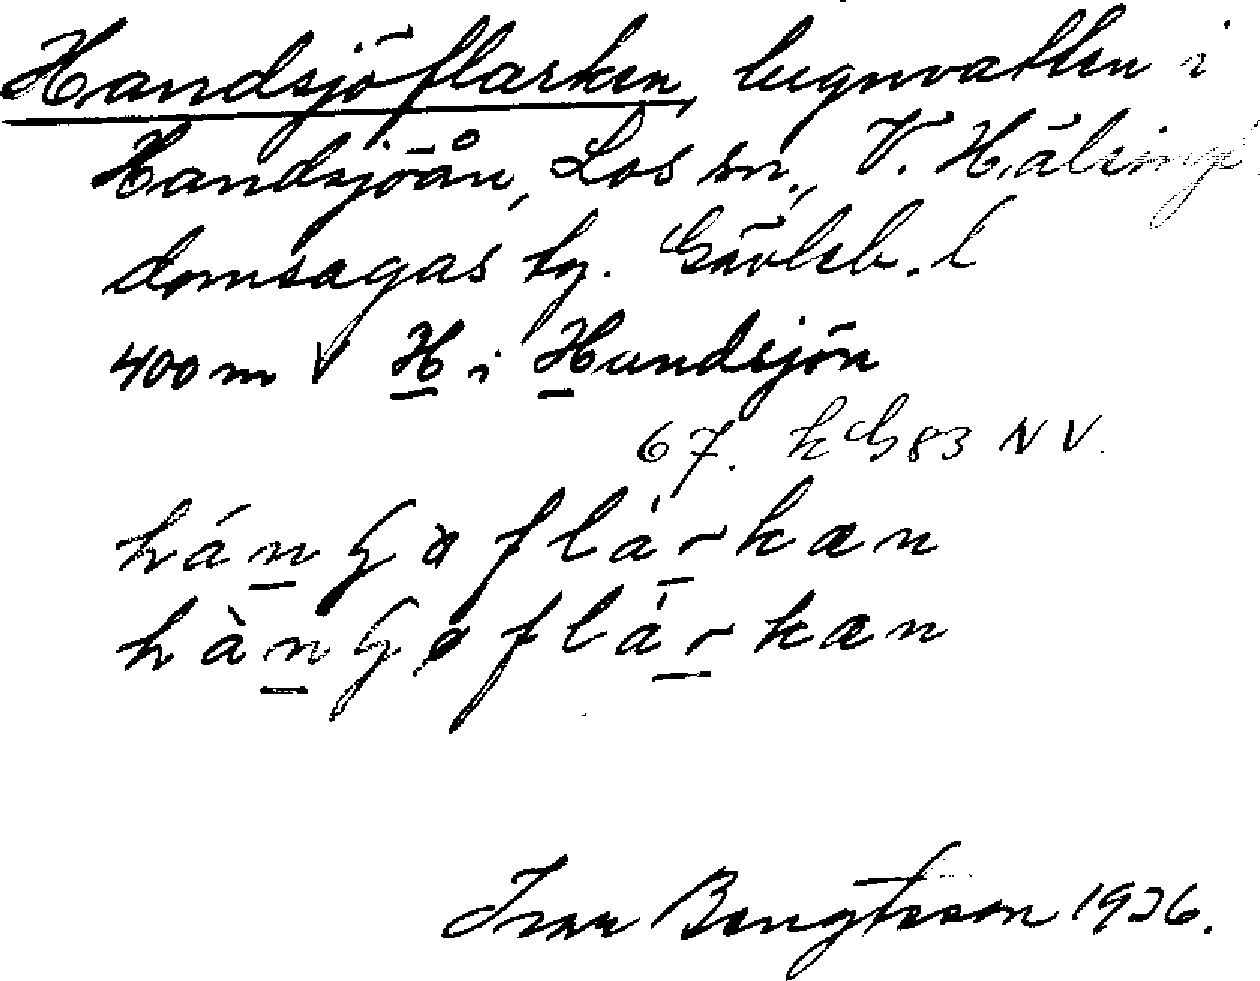 Handsjöflarken, lugnvatten i
Handsjöån, Los sn., V. Hälsingl.
domsagas tg. Gävleb. l
400 m V H i Handsjön
67. k G83 NV.
hánGøflárkan
hànGøflárkan
Ivar Bengtsson 1926.